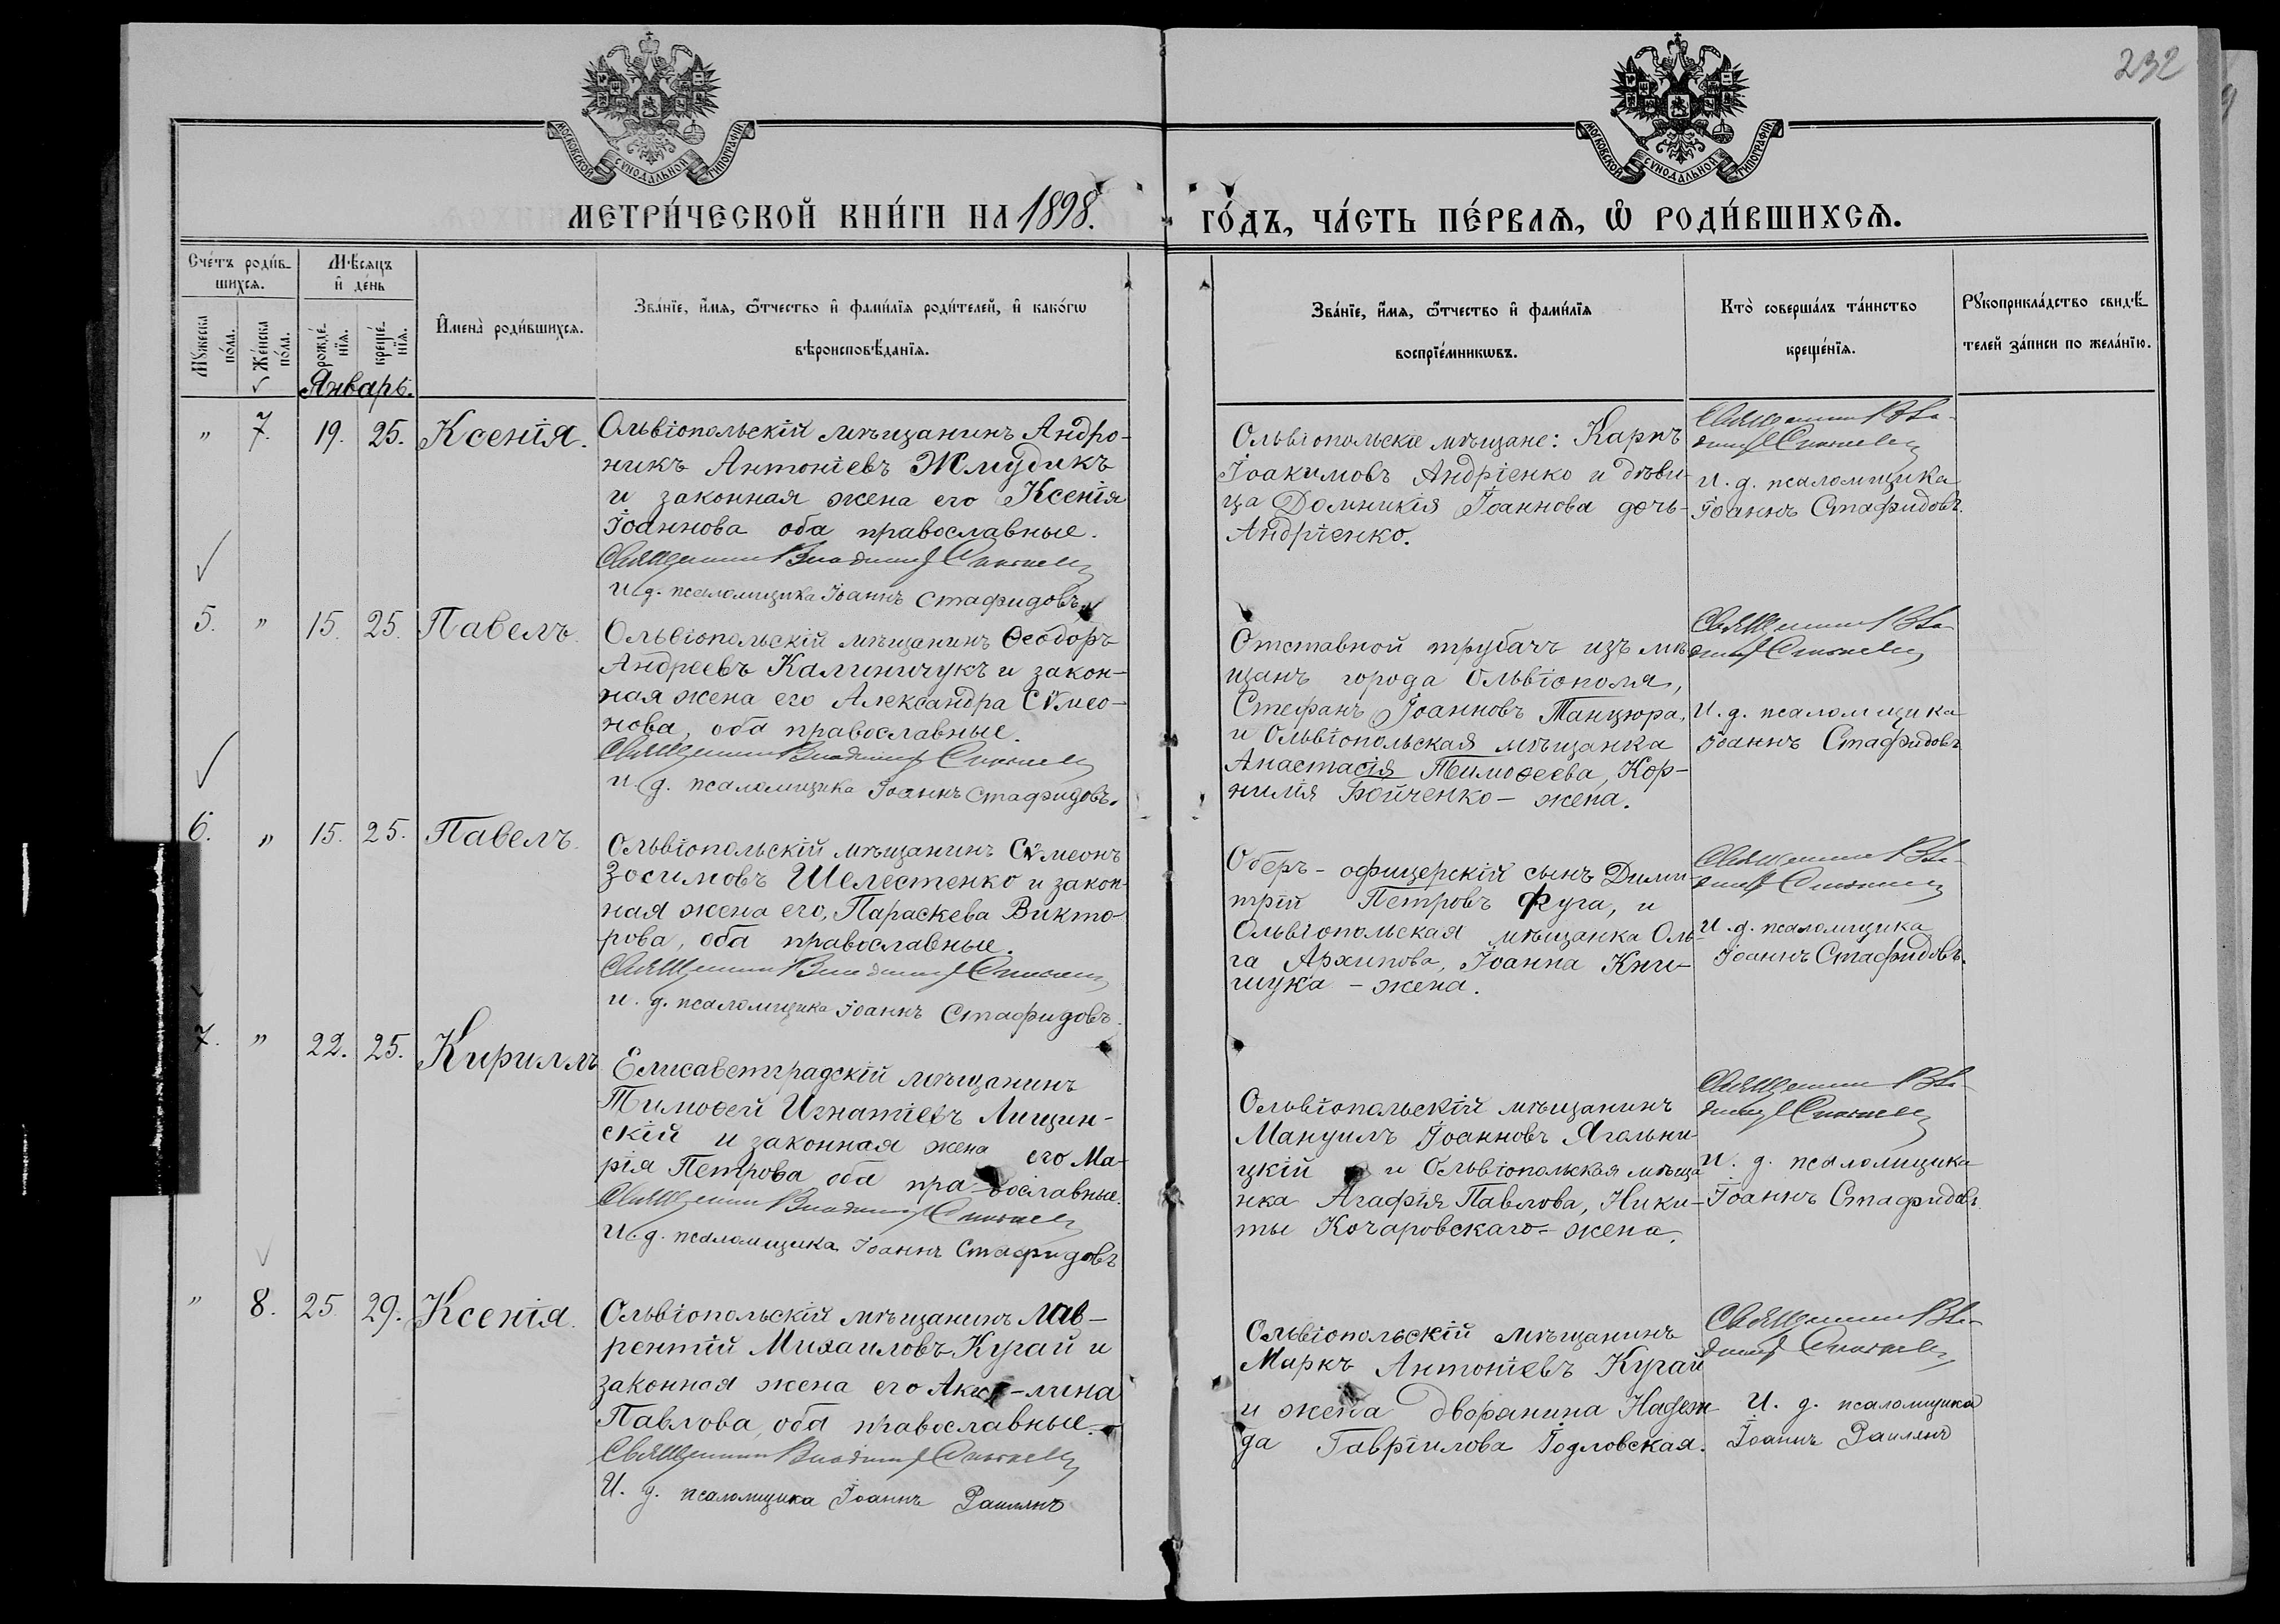 232
МОСКОВСКОЙ СѴНОДАЛЬНОЙ ТИПОГРАФІИ
МОСКОВСКОЙ СѴНОДАЛЬНОЙ ТИПОГРАФІИ
МЕТРИ́ЧЕСКОЙ КНИ́ГИ НА 1898.
ГО́ДЪ, ЧА́СТЬ ПЕ́РВАѦ, Ѡ РОДИ́ВШИХСѦ.
Сче́тъ роди́в-
шихсѧ.
Мꙋ́жеска по́ла.
Же́нска по́ла.
Мѣ́сѧцъ
и҆ де́нь
рожде́-
нїѧ.
креще́-
нїѧ.
И҆мена̀ роди́вшихсѧ.
Зва́нїе, и҆́мѧ, ѻ҆́тчество и҆ фами́лїѧ роди́телей, и҆ како́гѡ
вѣроисповѣ́данїѧ.
Зва́нїе, и҆́мѧ, ѻ҆́тчество и҆ фами́лїѧ
воспрїе́мникѡвъ.
Кто̀ соверша́лъ та́инство
креще́нїѧ.
Рꙋкоприкла́дство свидѣ́-
телей за́писи по жела́нїю.
Январь.
" 7. 19. 25. Ксенія.
Ольвіопольскій мѣщанинъ Андро-
никъ Антоніевъ Жмудикъ
и законная жена его Ксенія
Іоаннова оба православные.
Священникъ Владимір
И. д. псаломщика Іоаннъ Стафидовъ
Ольвіопольскіе мѣщане: Карпъ
Іоакимовъ Андріенко и дѣви-
ца Домникія Іоаннова дочь-
Андріенко.
Священникъ Вла-
димір
И. д. псаломщика
Іоаннъ Стафидовъ.
5. " 15. 25. Павелъ.
Ольвіопольскій мѣщанинъ Ѳеодоръ
Андреевъ Калиничукъ и закон-
ная жена его Александра Сѵмео-
нова, оба православные.
Священникъ Владимір
И. д. псаломщика Іоаннъ Стафидовъ.
Отставной трубачъ изъ мѣ-
щанъ города Ольвіополя,
Стефанъ Іоанновъ Танцюра,
и Ольвіопольская мѣщанка
Анастасія Тимоѳеева, Кор-
нилія Бойченко - жена.
Священникъ Вла-
димір
И. д. псаломщика
Іоаннъ Стафидовъ
6. " 15. 25. Павелъ.
Ольвіопольскій мѣщанинъ Сѵмеонъ
Зосимовъ Шелестенко и закон-
ная жена его, Параскева Викто-
рова, оба православные.
Священникъ Владимір
и. д. псаломщика Іоаннъ Стафидовъ.
Оберъ-офицерскій сынъ Дими-
трій Петровъ Фуга, и
Ольвіопольская мѣщанка Оль-
га Архипова, Іоанна Кни-
шука - жена.
Священникъ Вла-
димір
И. д. псаломщика
Іоаннъ Стафидовъ.
7. " 22. 25. Кириллъ
Елисаветградскій мѣщанинъ
Тимоѳей Игнатіевъ Лищин-
скій и законная жена его Ма-
рія Петрова оба пра-вославные.
Священникъ Владимір
И. д. псаломщика Іоаннъ Стафидовъ
Ольвіопольскій мѣщанинъ
Мануилъ Іоанновъ Ягольни-
цкій и Ольвіопольская мѣща
нка Агафія Павлова, Ники-
ты Кочаровскаго - жена.
Священникъ Вла-
димір
И. д. псаломщика
Іоаннъ Стафидовъ.
" 8. 25. 29. Ксенія.
Ольвіопольскій мѣщанинъ Лав-
рентій Михаиловъ Кугай и
законная жена его Аки-лина
Павлова, оба православные.
Священникъ Владимір
И. д. псаломщика Іоаннъ
Ольвіопольскій мѣщанинъ
Маркъ Антоніевъ Кугай
и жена дворянина Надеж-
да Гавріилова Іодловская.
Священникъ Вла-
димір
И. д. псаломщика
Іоаннъ